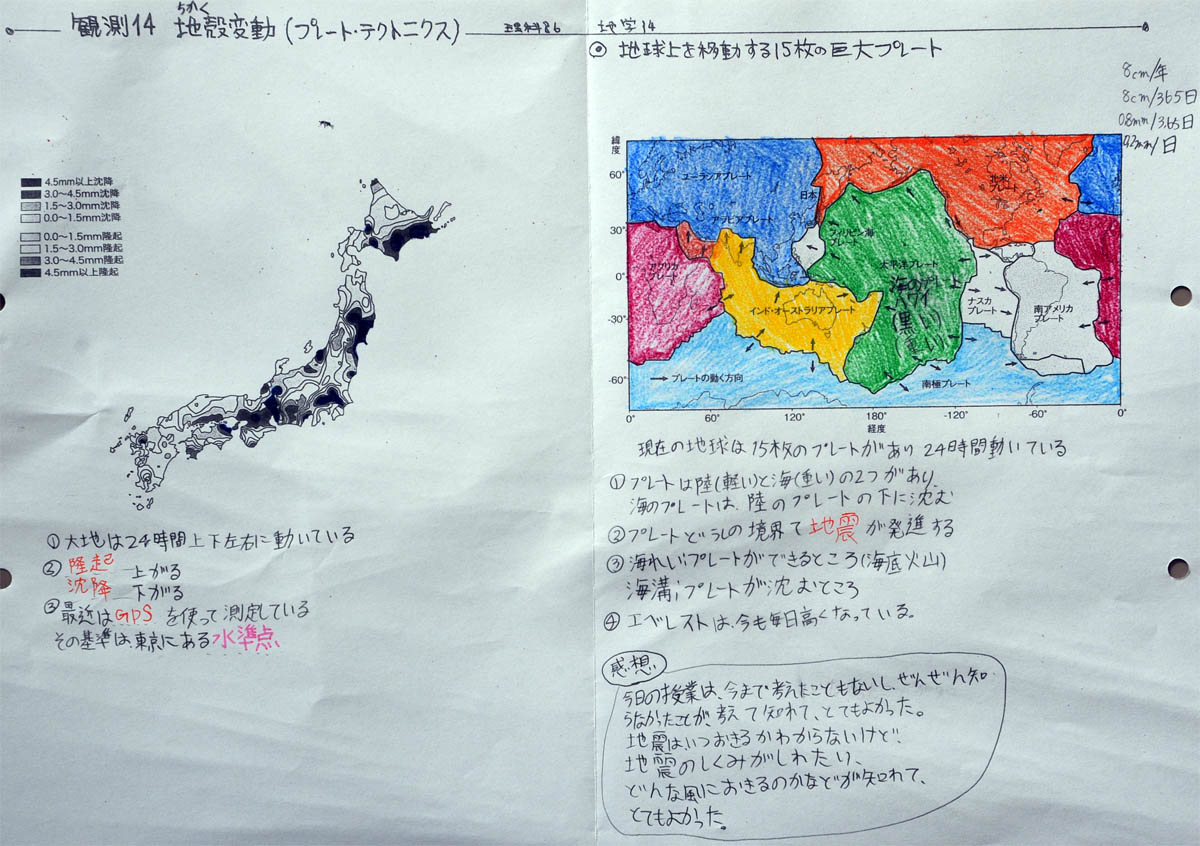 観測14 地殻変動(プレート・テクトニクス)
ちかく
理科86
4.5mm以上沈降
3.0〜4.5mm沈降
1.5〜3.0mm沈降
0.0〜1.5mm沈降
0.0〜1.5mm隆起
1.5〜3.0mm隆起
3.0〜4.5mm隆起
4.5mm以上隆起
①大地は24時間上下左右に動いている
②隆起 上がる
沈降 下がる
③最近はGPSを使って測定している
その基準は、東京にある水準点
地学14
◎地球上を移動する15枚の巨大プレート
8cm/年
8cm/365日
08mm/3.65日
日
緯度
60°
30°
0°
-30°
-60°
ユーラシアプレート
日本
北米プレート
アラビアプレート
フィリピン海プレート
アフリカプレート
太平洋プレート
海のプレート
ハワイ
(黒い)
重い
インド・オーストラリアプレート
ナスカプレート
南アメリカプレート
プレートの動く方向
南極プレート
0° 60° 120° 180° -120° -60° 0°
経度
現在の地球は15枚のプレートがあり24時間動いている
①プレートは陸(軽い)と海(重い)の2つがあり、
海のプレートは、陸のプレートの下に沈む
②プレートどうしの境界で地震が発進する
③海れい;プレートができるところ(海底火山)
海溝;プレートが沈むところ
④エベレストは、今も毎日高くなっている。
感想
今日の授業は、今まで考えたこともないし、ぜんぜん知
らなかったことが、考えて知れて、とてもよかった。
地震はいつおきるかわからないけど、
地震のしくみがしれたり、
どんな風におきるのかなどが知れて、
とてもよかった。